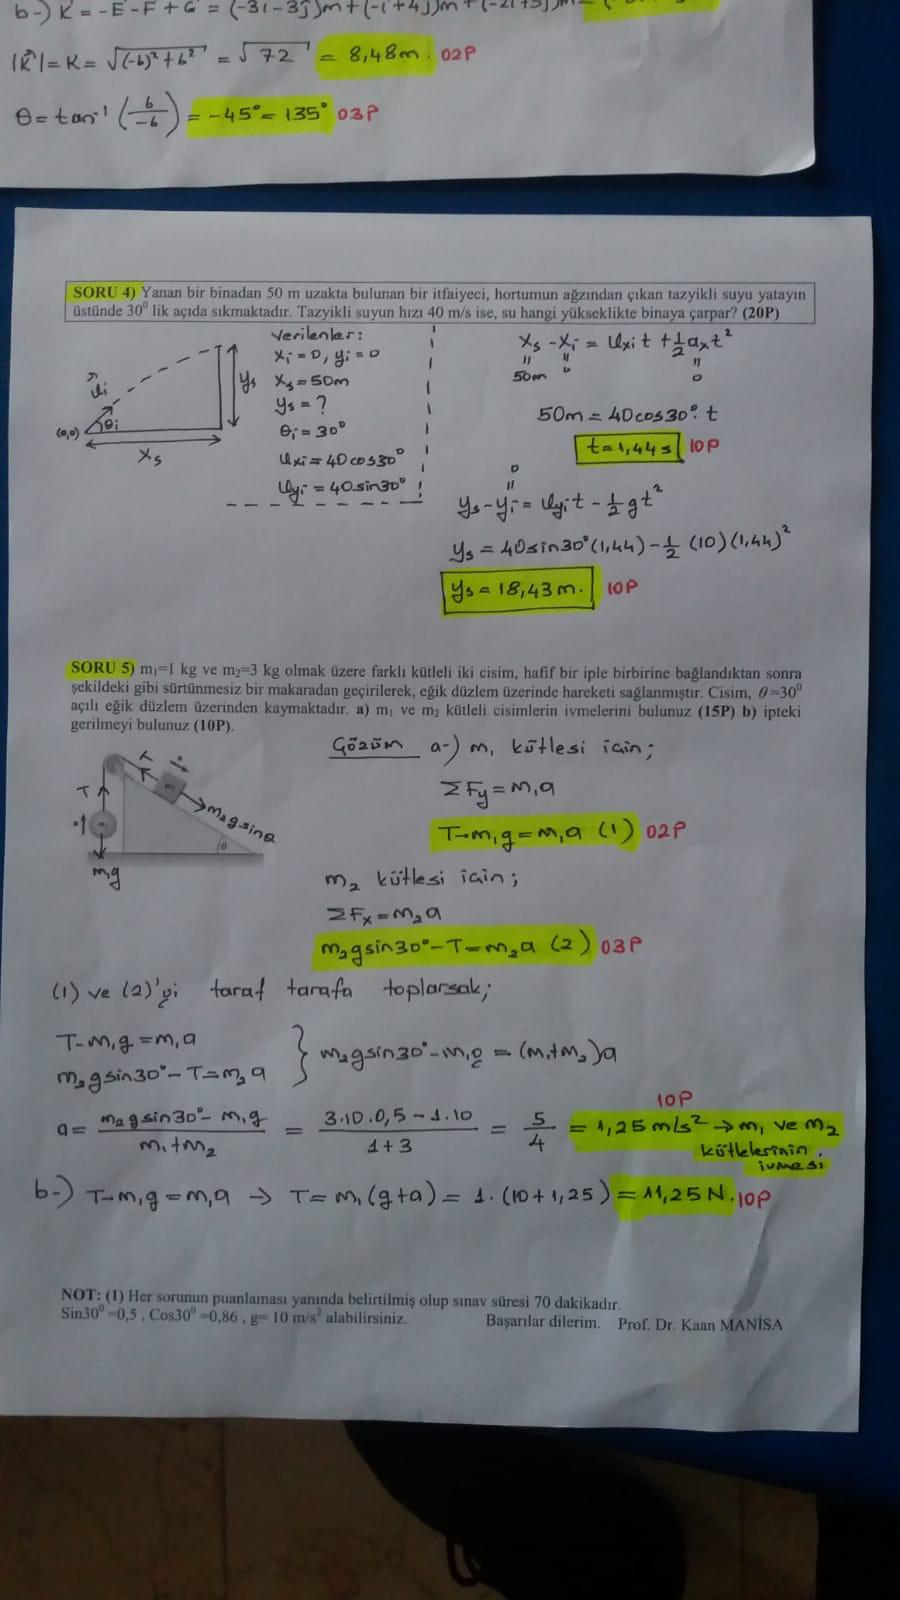 b-) K = -E - F + G = (-3i - 3j)m + (-i + 4j)m +
|K⃗| = K = √(-6)² + 6² = √72 = 8,48m. 02P
θ = tan⁻¹ (6/-6) = -45° = 135° 03P
SORU 4) Yanan bir binadan 50 m uzakta bulunan bir itfaiyeci, hortumun ağzından çıkan tazyikli suyu yatayın
üstünde 30⁰ lik açıda sıkmaktadır. Tazyikli suyun hızı 40 m/s ise, su hangi yükseklikte binaya çarpar? (20P)
Verilenler:
xi = 0, yi = 0
xs = 50m
ys = ?
θi = 30°
υxi = 40cos30°
υyi = 40sin30°
υi
θi
(0,0)
xs
ys
xs - xi = υxi t + ½ axt²
50m 0 0
50m = 40cos30°. t
t = 1,44s 10P
0
ys - yi = υyi t - ½ gt²
ys = 40sin30° (1,44) - ½ (10) (1,44)²
ys = 18,43m. 10P
SORU 5) m₁=1 kg ve m₂=3 kg olmak üzere farklı kütleli iki cisim, hafif bir iple birbirine bağlandıktan sonra
şekildeki gibi sürtünmesiz bir makaradan geçirilerek, eğik düzlem üzerinde hareketi sağlanmıştır. Cisim, θ=30⁰
açılı eğik düzlem üzerinden kaymaktadır. a) m₁ ve m₂ kütleli cisimlerin ivmelerini bulunuz (15P) b) ipteki
gerilmeyi bulunuz (10P).
T
T
a
m₂gsinθ
θ
m₁g
Çözüm a-) m₁ kütlesi için;
ΣFy = m₁a
T - m₁g = m₁a (1) 02P
m₂ kütlesi için;
ΣFx = m₂a
m₂gsin30° - T = m₂a (2) 03P
(1) ve (2)'yi taraf tarafa toplarsak;
T - m₁g = m₁a
m₂gsin30° - T = m₂a
} m₂gsin30° - m₁g = (m₁+m₂)a
a = m₂gsin30° - m₁g / m₁+m₂ = 3.10.0,5 - 1.10 / 1+3 = 5/4 = 1,25 m/s² → m₁ ve m₂ 10P
kütlelerinin
ivmesi
b-) T - m₁g = m₁a → T = m₁(g+a) = 1.(10+1,25) = 11,25 N. 10P
NOT: (1) Her sorunun puanlaması yanında belirtilmiş olup sınav süresi 70 dakikadır.
Sin30⁰ =0,5 , Cos30⁰ =0,86 , g= 10 m/s² alabilirsiniz. Başarılar dilerim. Prof. Dr. Kaan MANİSA